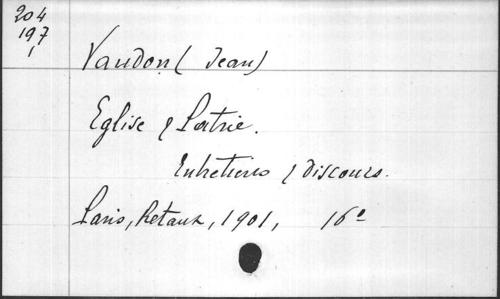 204
197
1
Vaudon (Jean)
Eglise & Patrie.
Entretiens & discours.
Paris, Retaux, 1901, 16º